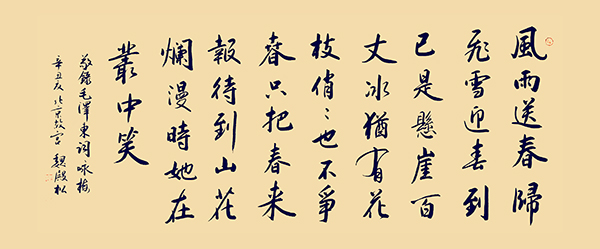 風雨送春歸
飛雪迎春到
已是懸崖百
丈冰猶有花
枝俏〻也不爭
春只把春来
報待到山花
爛漫時她在
叢中笑
敬錄毛澤東詞咏梅
辛丑 北京 魏殿松